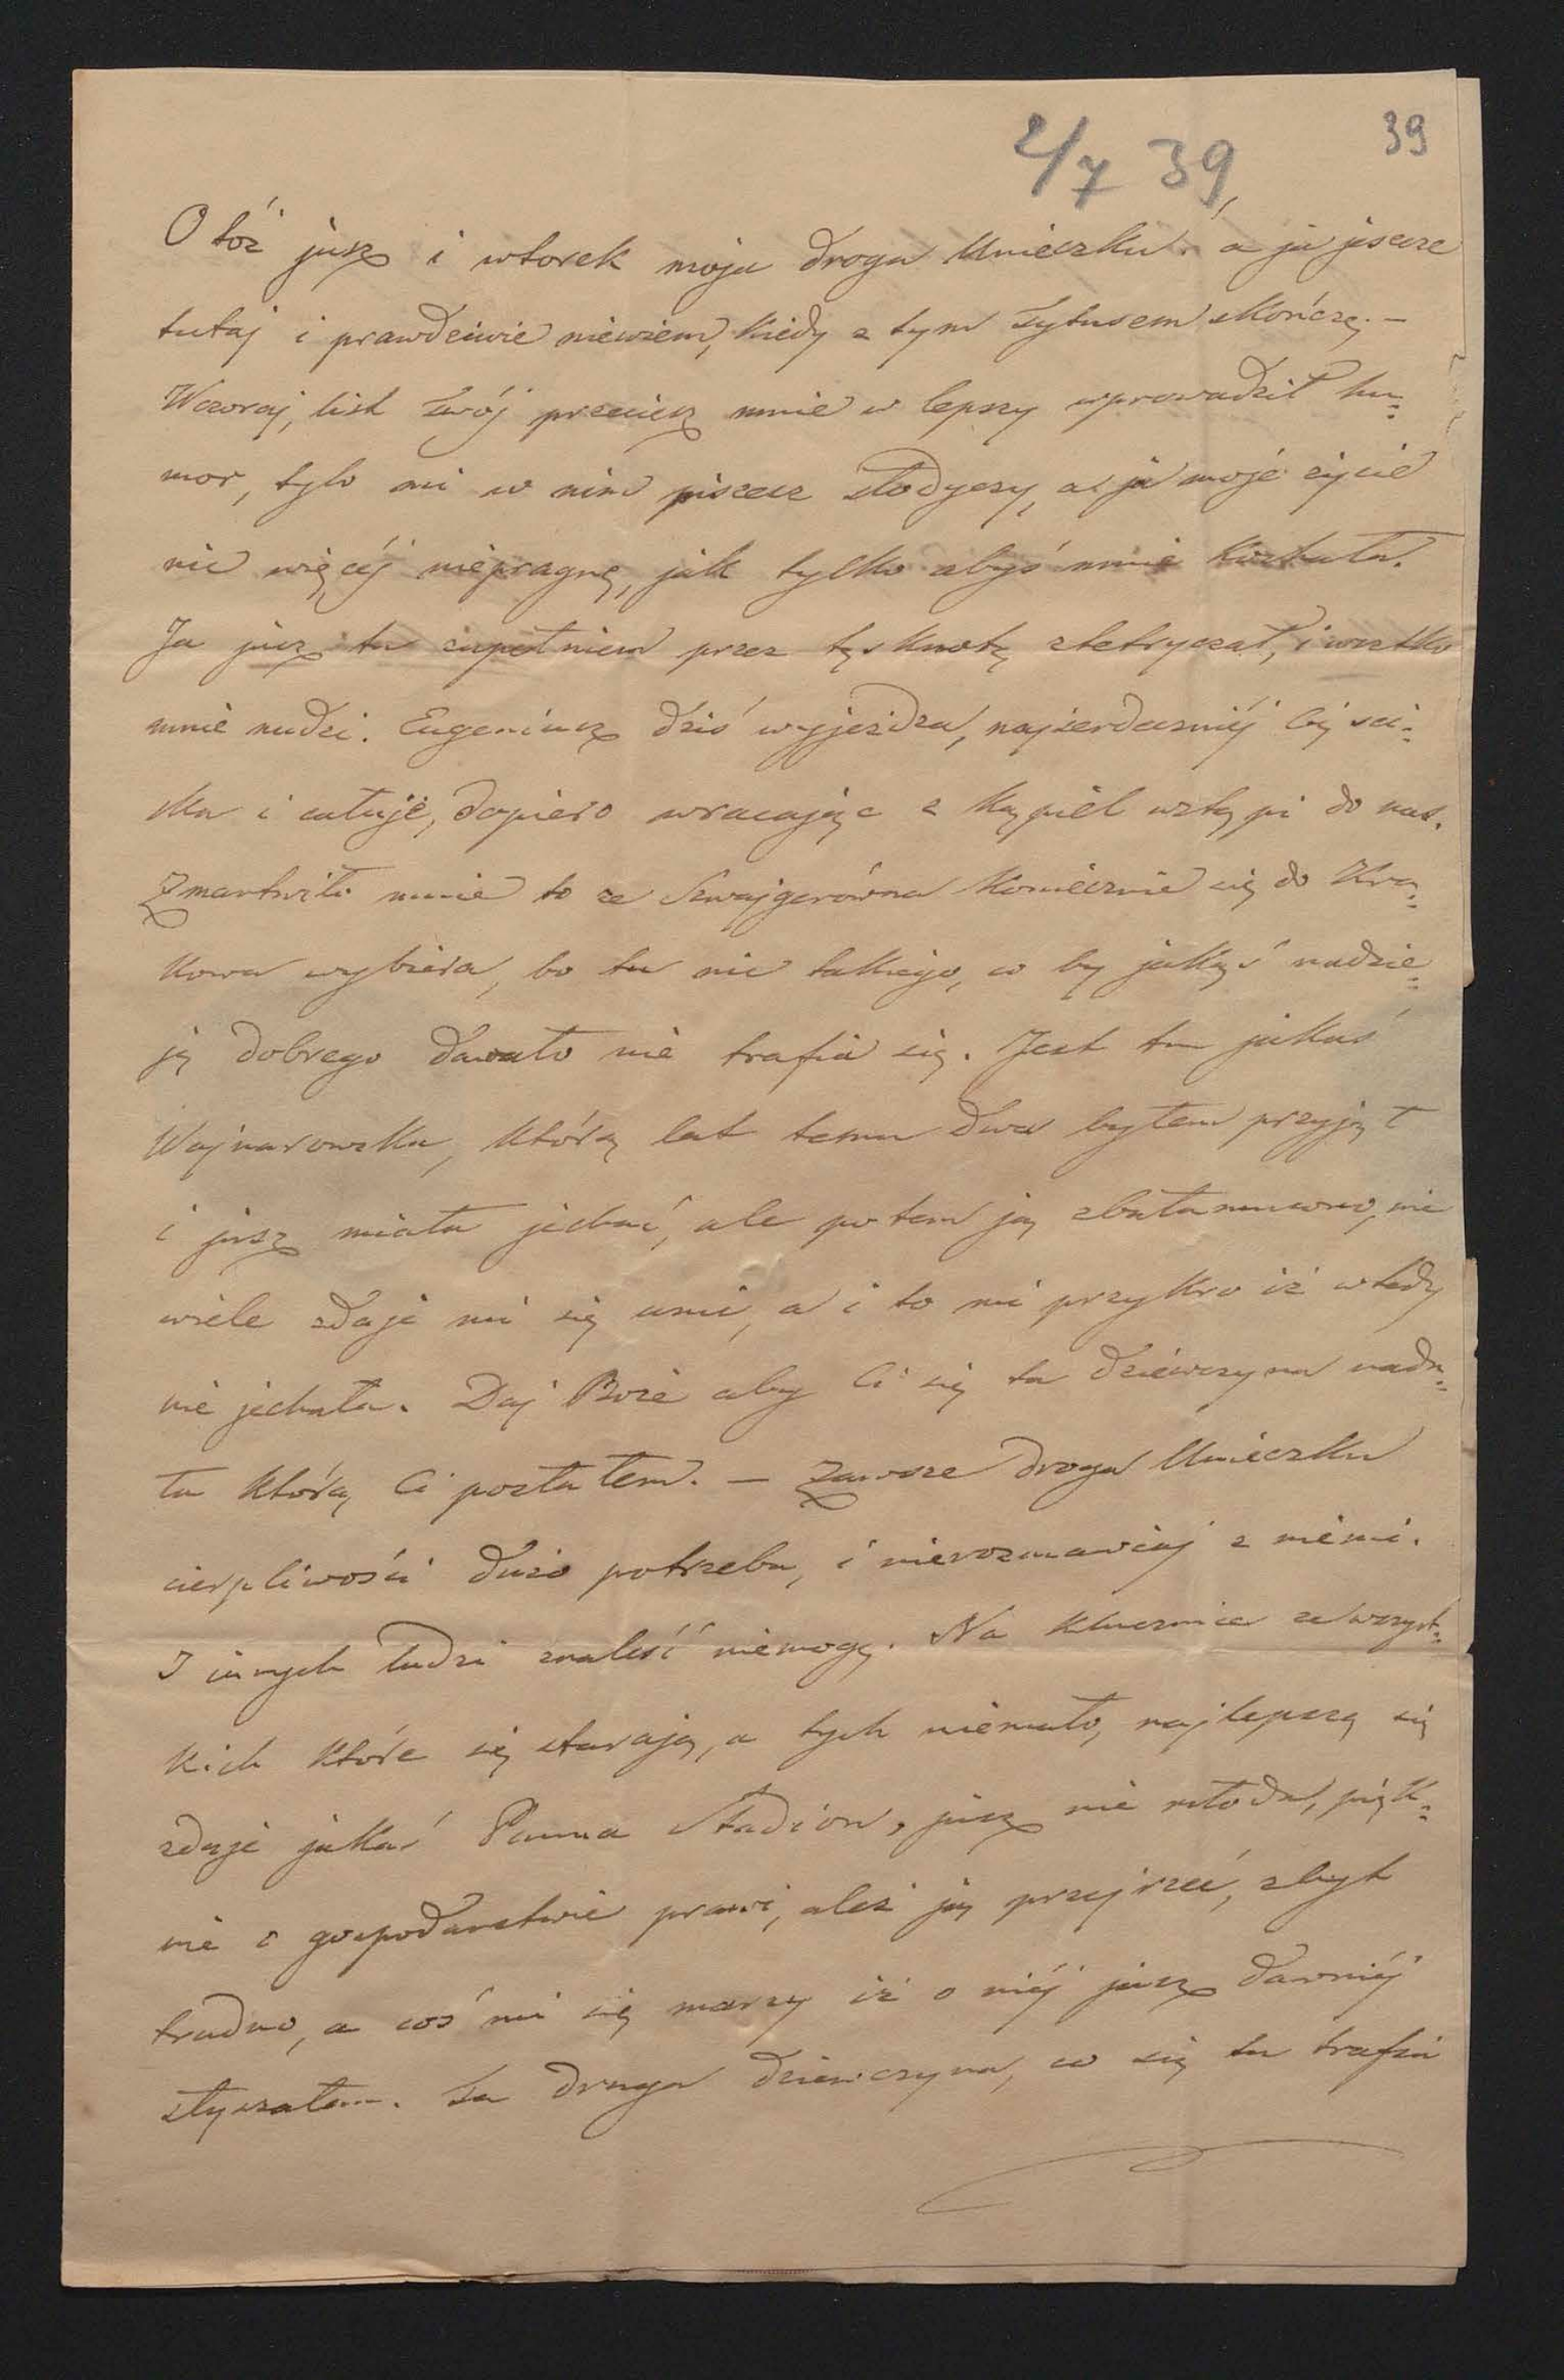 2/7 39
39
O tóż jusz i wtorek moja droga Unieczku a ja jescze
tutaj i prawdziwie niewiem, kiedy z tym Tytusem skończę. –
Wczoraj, list Twój przeciesz mnie w lepszy wprowadził hu=
mor, tylo mi w nim piszesz słodyczy, a ja moje życie
nic więcéj niepragnę, jak tylko abyś mnie kochała.
Ja jusz tu zupełniem przez tęsknotę stetryczał, i wsztko
mnie nudzi. Eugeniusz dziś wyjeżdza, najserdeczniéj Cię sci=
ska i całuje, dopiero wracając z kąpiel wstąpi do nas.
Zmartwiło mnie to ze Szwajgerówna koniecznie się do Kra=
kowa wybiera, bo tu nic takiego, co by jakąś nadzie=
ję dobrego dawało nie trafia się. Jest tu jakaś
Wojnarowska, którą lat temu dwa byłem przyjął
i jusz miała jechać, ale potem ją zbałamucono, nie
wiele zdaje mi się umié, a i to mi przykro iż wtedy
nie jechała. Daj Boże aby Ci się ta dziewczyna nada=
ła którą Ci posłałem. – Zawsze droga Unieczku
cierpliwości dużo potrzeba, i nierozmawiaj z niémi.
I innych ludzi znaleść niemogę. Na klucznice ze wszyst=
kich które się starają, a tych niemało, najlepszą się
zdaje jakaś Panna Stadion, jusz nie młoda, pięk=
nie o gospodarstwie prawi, aleś ją przejrzeć, zbyt
trudno, a coś mi się marzy iż o niéj jusz dawniéj
słyszałam. Ta druga dziewczyna, co się tu trafia